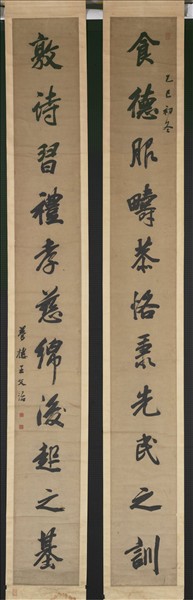 食德服疇恭恪秉先民之訓
乙巳初冬
敦詩習禮孝慈綿後起之基
夢樓王文治